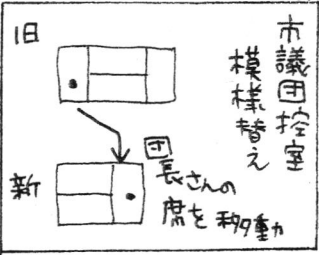 市議団控室
模様替え
旧
新
団長さんの
席を移動